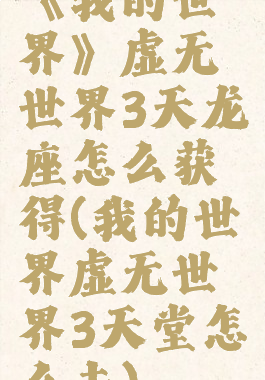 《我的世
界》虚无
世界3天龙
座怎么获
得(我的世
界虚无世
界3天堂怎
么去)